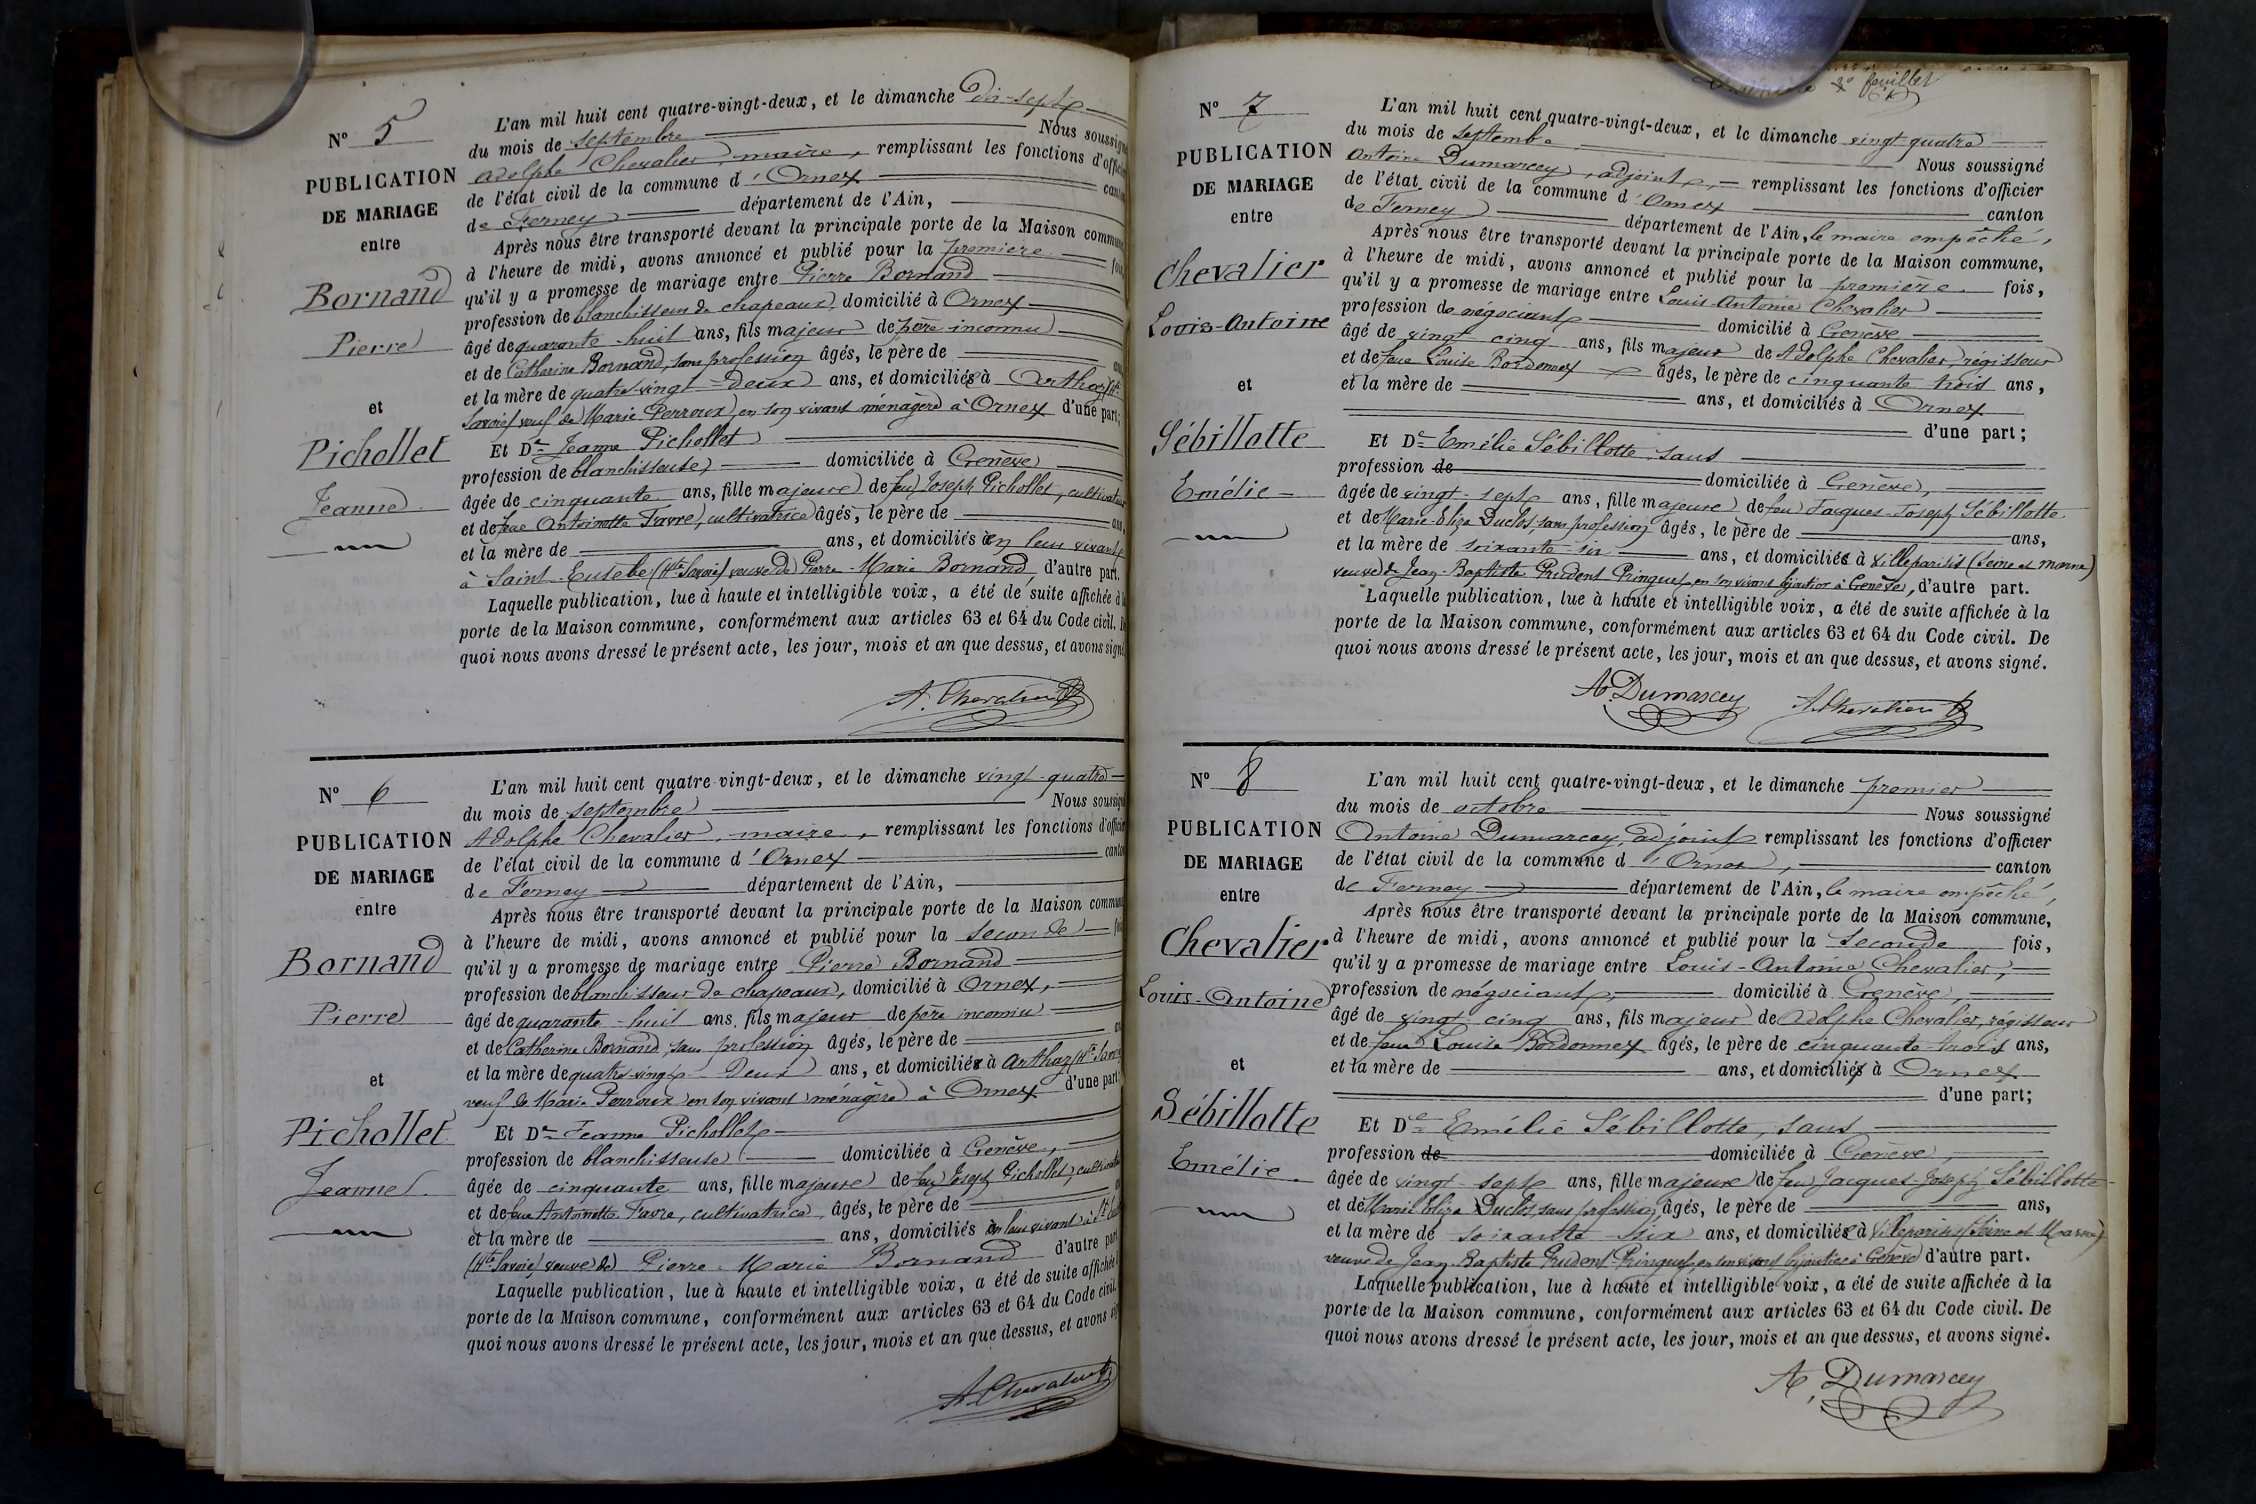 N° 5
PUBLICATION
DE MARIAGE
entre
Bornand
Pierre
et
Pichollet
Jeanne
L'an mil huit cent quatre-vingt-deux, et le dimanche dix-sept
du mois de septembre Nous soussigné
Adolphe Chevalier, maire, remplissant les fonctions d'officier
de l'état civil de la commune d'Ornex canton
de Ferney département de l'Ain,
Après nous être transporté devant la principale porte de la Maison commune,
à l'heure de midi, avons annoncé et publié pour la première fois,
qu'il y a promesse de mariage entre Pierre Bornand
profession de blanchisseur de chapeaux, domicilié à Ornex
âgé de quarante-huit ans, fils majeur de père inconnu
et de Catherine Bornand, sans profession âgés, le père de ans,
et la mère de quatre-vingt-deux ans, et domiciliés à Arthaz (Hte
Savoie) veuf de Marie Perroux, en son vivant ménagère à Ornex d'une part;
Et De Jeanne Pichollet
profession de blanchisseuse, domiciliée à Genève
âgée de cinquante ans, fille majeure de feu Joseph Pichollet, cultivateur
et de feue Antoinette Favre, cultivatrice âgés, le père de ans,
et la mère de ans, et domiciliés en leur vivant
à Saint-Eusèbe (Hte Savoie) veuve de Pierre-Marie Bornand, d'autre part.
Laquelle publication, lue à haute et intelligible voix, a été de suite affichée à la
porte de la Maison commune, conformément aux articles 63 et 64 du Code civil. De
quoi nous avons dressé le présent acte, les jour, mois et an que dessus, et avons signé.
A. Chevalier
N° 6
PUBLICATION
DE MARIAGE
entre
Bornand
Pierre
et
Pichollet
Jeanne
L'an mil huit cent quatre-vingt-deux, et le dimanche vingt-quatre
du mois de septembre Nous soussigné
Adolphe Chevalier, maire, remplissant les fonctions d'officier
de l'état civil de la commune d'Ornex canton
de Ferney département de l'Ain,
Après nous être transporté devant la principale porte de la Maison commune
à l'heure de midi, avons annoncé et publié pour la seconde fois
qu'il y a promesse de mariage entre Pierre Bornand
profession de blanchisseur de chapeaux, domicilié à Ornex,
âgé de quarante-huit ans, fils majeur de père inconnu
et de Catherine Bornand, sans profession âgés, le père de ans
et la mère de quatre-vingt-deux ans, et domiciliés à Arthaz (Hte Savoie
veuf de Marie Perroux en son vivant ménagère à Ornex d'une part;
Et De Jeanne Pichollet
profession de blanchisseuse domiciliée à Genève,
âgée de cinquante ans, fille majeure de feu Joseph Pichollet, cultivateur
et de feue Antoinette Favre, cultivatrice âgés, le père de
et la mère de ans, domiciliés en leur vivant à St
(Hte Savoie) veuve de Pierre-Marie Bornand d'autre part
Laquelle publication, lue à haute et intelligible voix, a été de suite affichée
porte de la Maison commune, conformément aux articles 63 et 64 du Code civil.
quoi nous avons dressé le présent acte, les jour, mois et an que dessus, et avons
A. Chevalier
2e feuillet
N° 7
PUBLICATION
DE MARIAGE
entre
Chevalier
Louis-Antoine
et
Sébillotte
Emélie
L'an mil huit cent quatre-vingt-deux, et le dimanche vingt-quatre
du mois de septembre Nous soussigné
Antoine Dumarcey, adjoint, remplissant les fonctions d'officier
de l'état civil de la commune d'Ornex canton
de Ferney département de l'Ain, le maire empêché,
Après nous être transporté devant la principale porte de la Maison commune,
à l'heure de midi, avons annoncé et publié pour la première fois,
qu'il y a promesse de mariage entre Louis-Antoine Chevalier
profession de négociant domicilié à Genève
âgé de vingt cinq ans, fils majeur de Adolphe Chevalier, régisseur
et de feue Louise Bordonnex âgés, le père de cinquante trois ans,
et la mère de ans, et domiciliés à Ornex
d'une part;
Et De Emélie Sébillotte, sans
profession de domiciliée à Genève,
âgée de vingt-sept ans, fille majeure de feu Jacques-Joseph Sébillotte
et de Marie-Eliza Duclos, sans profession âgés, le père de ans,
et la mère de soixante six ans, et domiciliés à Villeparisis (Seine et Marne)
veuve de Jean-Baptiste Prudent Pringuet, en son vivant bijoutier à Genève, d'autre part.
Laquelle publication, lue à haute et intelligible voix, a été de suite affichée à la
porte de la Maison commune, conformément aux articles 63 et 64 du Code civil. De
quoi nous avons dressé le présent acte, les jour, mois et an que dessus, et avons signé.
A. Dumarcey A. Chevalier
N° 8
PUBLICATION
DE MARIAGE
entre
Chevalier
Louis-Antoine
et
Sébillotte
Emélie
L'an mil huit cent quatre-vingt-deux, et le dimanche premier
du mois de octobre Nous soussigné
Antoine Dumarcey, adjoint remplissant les fonctions d'officier
de l'état civil de la commune d'Ornex, canton
de Ferney département de l'Ain, le maire empêché,
Après nous être transporté devant la principale porte de la Maison commune,
à l'heure de midi, avons annoncé et publié pour la seconde fois,
qu'il y a promesse de mariage entre Louis-Antoine Chevalier,
profession de négociant, domicilié à Genève,
âgé de vingt cinq ans, fils majeur de Adolphe Chevalier, régisseur
et de feue Louise Bordonnex âgés, le père de cinquante-trois ans,
et la mère de ans, et domiciliés à Ornex
d'une part;
Et De Emélie Sébillotte, sans
profession de domiciliée à Genève,
âgée de vingt-sept ans, fille majeure de feu Jacques-Joseph Sébillotte
et de Marie Eliza Duclos, sans profession, âgés, le père de ans,
et la mère de soixante-six ans, et domiciliés à Villeparisis (Seine et Marne)
veuve de Jean-Baptiste Prudent Pringuet, en son vivant bijoutier à Genève d'autre part.
Laquelle publication, lue à haute et intelligible voix, a été de suite affichée à la
porte de la Maison commune, conformément aux articles 63 et 64 du Code civil. De
quoi nous avons dressé le présent acte, les jour, mois et an que dessus, et avons signé.
A. Dumarcey